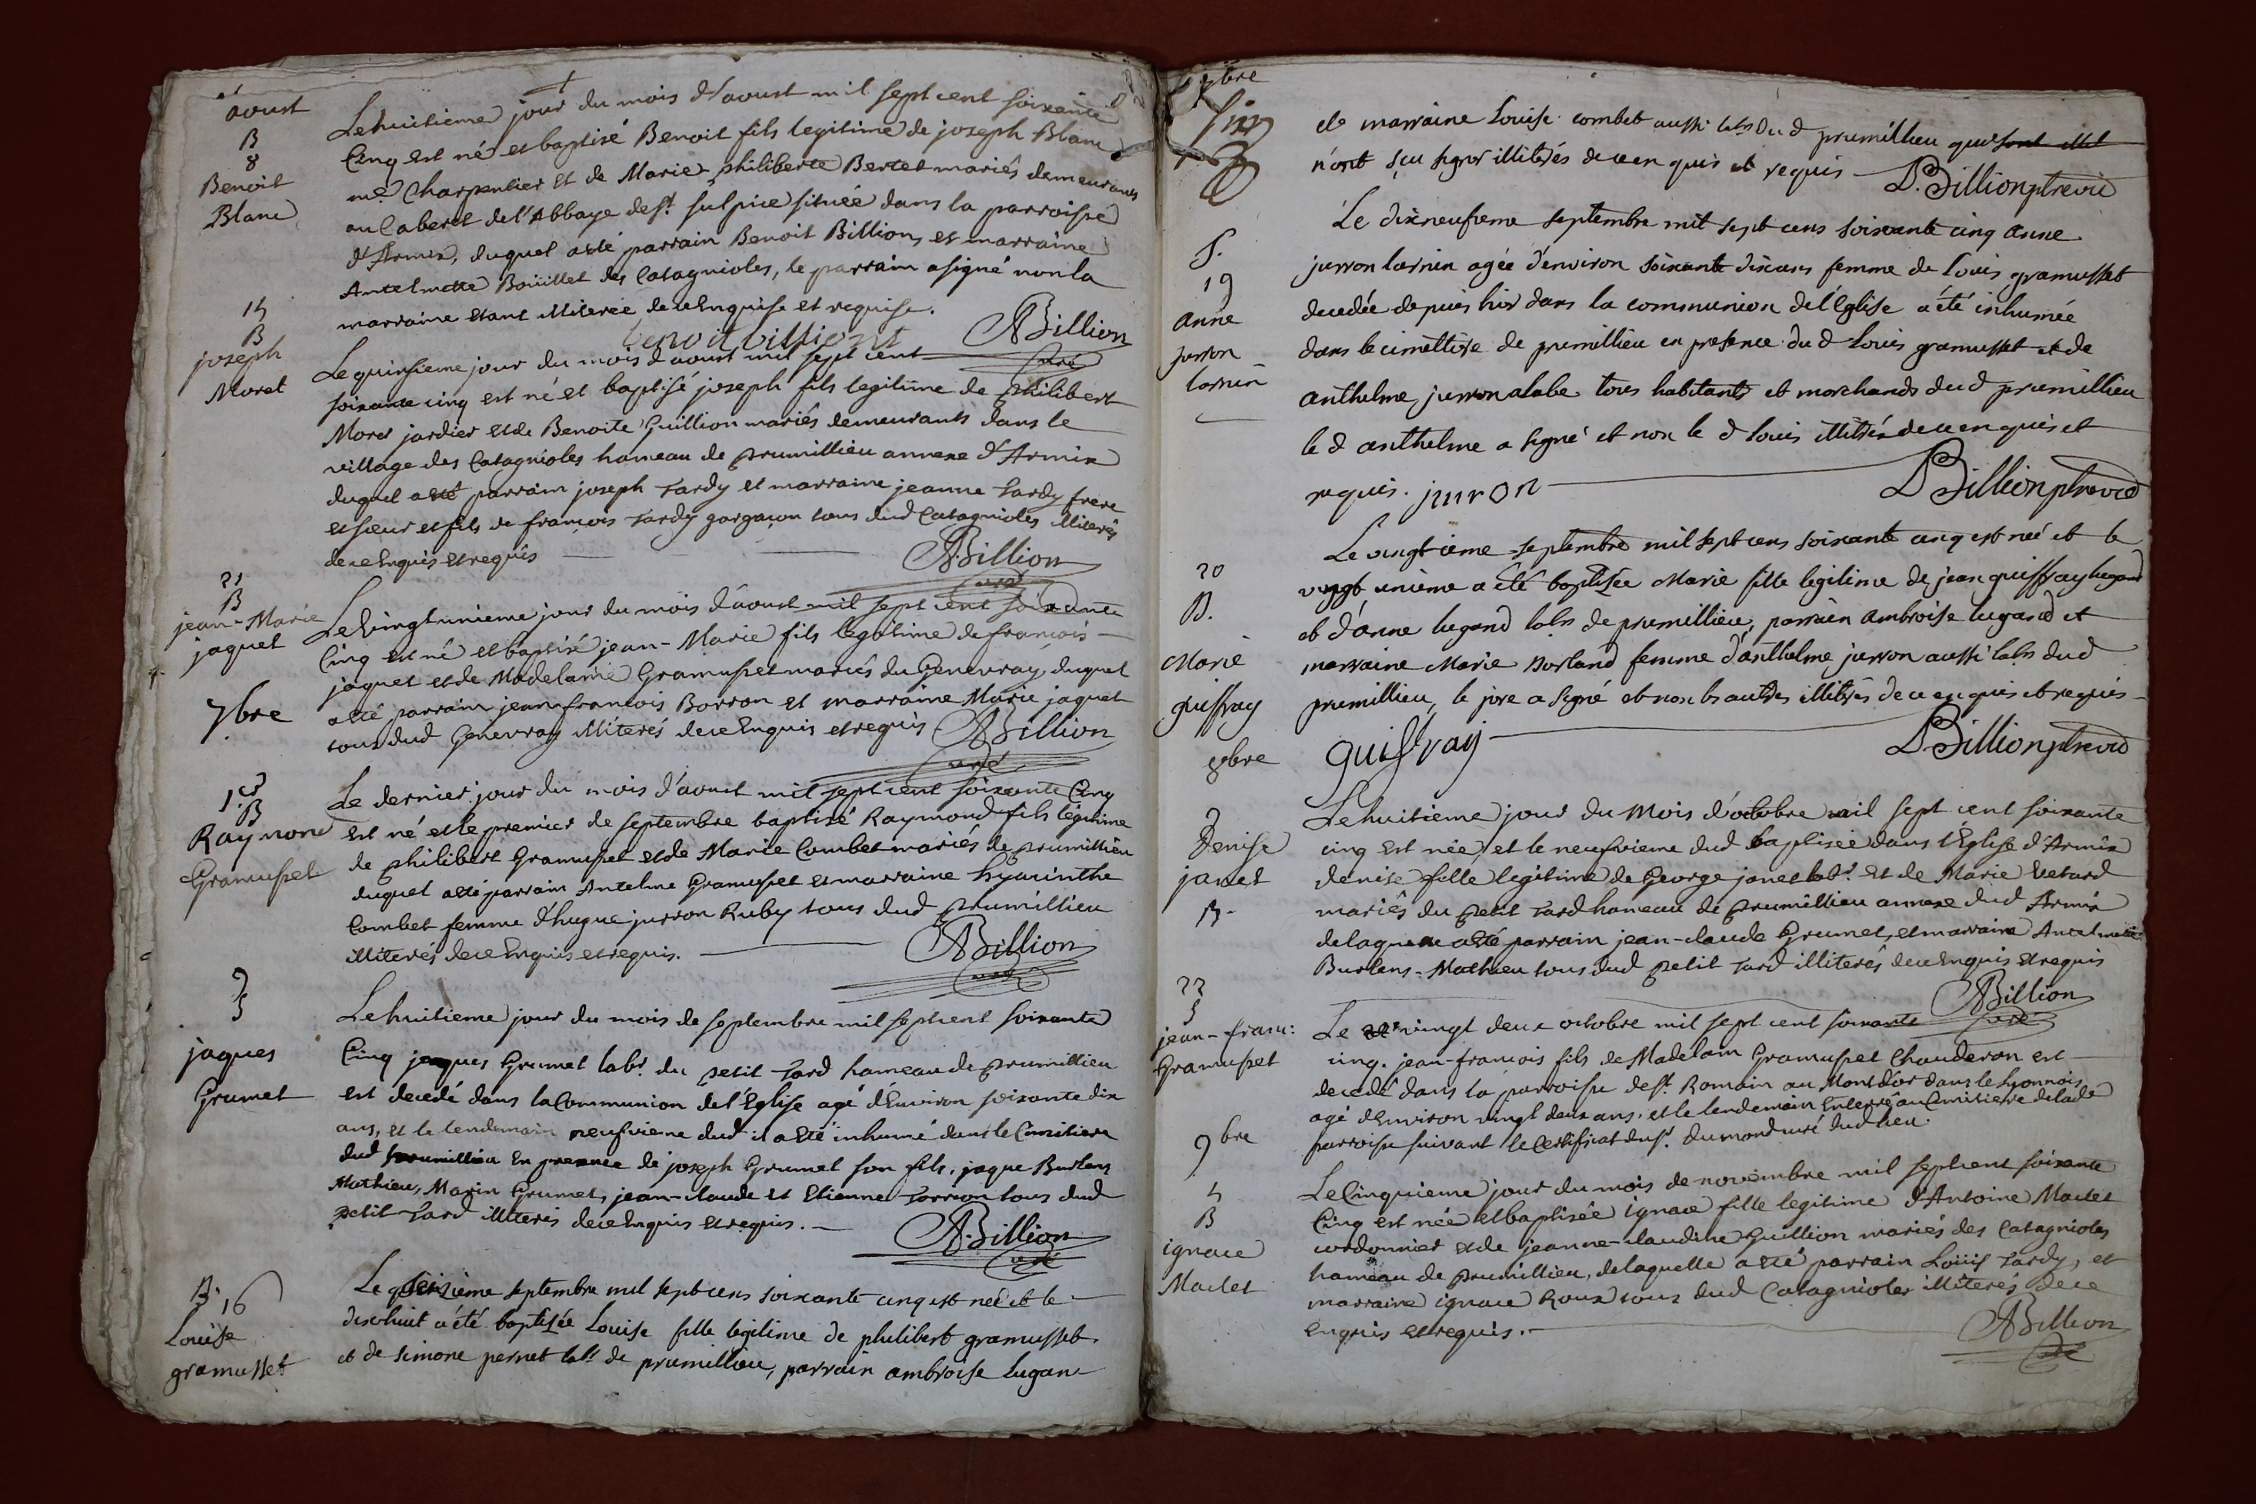 aoust
B
8
Benoit
Blanc
Le huitieme jour du mois d'aoust mil sept cent soixante
Cinq est né et baptisé Benoit fils legitime de joseph Blanc
me. Charpentier et de Marie philiberte Bertet mariés demeurants
au Caberet de l'Abbaye de st. sulpice située dans la parroisse
d'Armix, duquel a eté parrain Benoit Billion, et marraine
Antelmette Boüillet des Catagnioles, le parrain a signé non la
marraine etant illiterée de ce Enquise et requise.
benoit billiont
ABillion
curé
15
B
joseph
Moret
Le quinsieme jour du mois d'aoust mil sept cent
soixante cinq est né et baptisé joseph fils legitime de philibert
Moret jardier et de Benoite Guillion mariés demeurants dans le
village des Catagnioles hameau de prumillieu annexe d'Armix
duquel a eté parrain joseph Tardy et marraine jeanne Tardy frere
et sœur et fils de francois Tardy gargaçon tous dud Catagnioles illiterés
de ce Enquis et requis
ABillion
curé
21
B
jean-Marie
jaquet
Le vingt unieme jour du mois d'aoust mil sept cent soixante
Cinq est né et baptisé jean-Marie fils legitime de francois
jaquet et de Madelaine Gramusset mariés du Genevray, duquel
a eté parrain jean francois Borron et marraine Marie jaquet
tous dud Genevray illiterés de ce Enquis et requis
ABillion
curé
7bre
1er
B
Raymond
Gramusset
Le dernier jour du mois d'aoust mil sept cent soixante Cinq
est né et le premier de septembre baptisé Raymond fils légitime
de philibert Gramusset et de Marie Combet mariés de prumillieu
duquel a eté parrain Antelme Gramusset et marraine hyacinthe
Combet femme d'hugue jurron Ruby tous dud prumillieu
illiterés de ce Enquis et requis.
ABillion
curé
9
S
jaques
Grumet
Le huitieme jour du mois de septembre mil sept cent soixante
Cinq jaques Grumet labr. du petit Tard hameau de prumillieu
est decedé dans la Communion de l'Église agé d'Environ soixante dix
ans, et le lendemain neufvieme dud il a eté inhumé dans le Cimitiere
dud prumillieu En presence de joseph Grumet son fils, jaque Burlens
Mathieu, Marin Grumet, jean-claude et Etienne Torrion tous dud
petit Tard illiterés de ce Enquis et requis.
ABillion
curé
B. 16
Louise
gramusset
Le seizième septembre mil sept cens soixante cinq est née et le
dixhuit a été baptisée Louise fille legitime de philibert gramusset
et de simone pernet labs de prumillieu, parrain ambroise lugan
7bre
et marraine Louise combet aussi labs du d prumillieu qui sont illit
n'ont sçu signer illitérés de ce enquis et requis
D. Billion ptre vic
S.
19
anne
jurron
larnin
Le dixneufieme septembre mil sept cens soixante cinq anne
jurron larnin agée d'environ soixante dix ans femme de Louis gramusset
decedée depuis hier dans la communion de l'Eglise a été inhumée
dans le cimetière de prumillieu en presence du d Louis gramusset et de
anthelme jurron alabe tous habitants et marchands dud prumillieu
le d anthelme a signé et non le d Louis illitéré de ce enquis et
requis. juron
D Billion ptre vic
20
B.
Marie
guiffray
Le vingtieme septembre mil sept cens soixante cinq est née et le
vingt unieme a été baptisée Marie fille legitime de jean guiffray lugand
et d'anne lugand labs de prumillieu, parrain ambroise lugand et
marraine Marie Borland femme d'anthelme jurron aussi labs dud
prumillieu, le pere a signé et non les autres illitérés de ce enquis et requis
guiffray
D Billion ptre vic
8bre
9
Denise
janet
B.
Le huitieme jour du mois d'octobre mil sept cent soixante
cinq est née, et le neufvieme dud baptisée dans l'Église d'Armix
denise fille legitime de George janet labr. et de Marie Vetard
mariés du petit Tard hameau de prumillieu annexe dud Armix
de laquelle a eté parrain jean-claude Grumet, et marraine Antelmette
Burlens-Mathieu tous dud petit Tard illiterés de ce Enquis et requis
ABillion
curé
22
S
jean-franc:
Gramusset
Le vingt deux octobre mil sept cent soixante
cinq. jean-francois fils de Madelain Gramusset Chauderon est
decedé dans la parroisse de st. Romain au Mont d'or dans le lyonnois
agé d'Environ vingt deux ans, et le lendemain Enterré au Cimitiere de lade
parroisse suivant le Certificat du sr. dumond curé dud lieu.
9bre
5
B
ignace
Maclet
Le Cinquieme jour du mois de novembre mil sept cent soixante
Cinq est née et baptisée ignace fille legitime d'Antoine Maclet
cordonnier et de jeanne-claudine Guillion mariés des Catagnioles
hameau de prumillieu, de laquelle a eté parrain Loüis Tardy, et
marraine ignace Roux tous dud Catagnioles illiterés de ce
enquis et requis.
ABillion
curé